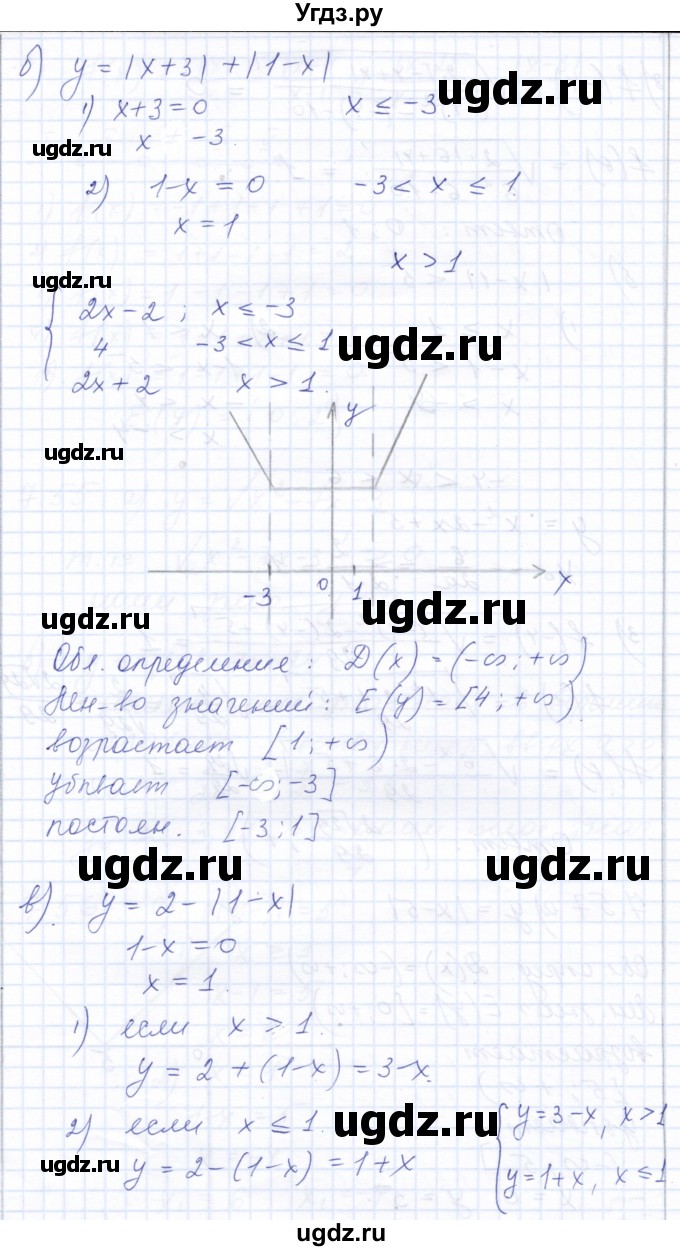 Угдз.ру
б) y = |x+3| + |1-x|
1) x+3=0 x ≤ -3.
x = -3.
2) 1-x = 0 -3 < x ≤ 1.
x = 1
x > 1
{ 2x-2 ; x ≤ -3
4 -3 < x ≤ 1
2x+2 x > 1.
y
-3 0 1 x
Обл. определения : D(x) = (-∞; +∞)
Мн-во значений : E(y) = [4; +∞)
возрастает [1; +∞)
убывает [-∞; -3]
постоян. [-3; 1]
в). y = 2 - |1-x|
1-x = 0
x = 1.
1) если x > 1.
y = 2 + (1-x) = 3-x.
2) если x ≤ 1. { y=3-x, x>1
y = 2-(1-x) = 1+x y=1+x, x≤1
ugdz.ru
ugdz.ru
ugdz.ru
ugdz.ru
ugdz.ru
ugdz.ru
ugdz.ru
ugdz.ru
ugdz.ru
ugdz.ru
ugdz.ru
ugdz.ru
ugdz.ru